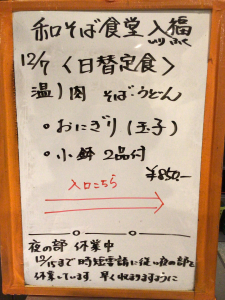 和そば食堂 入福
12/7 〈日替定食〉
温)肉 そば・うどん
・おにぎり(玉子)
・小鉢 2品付
¥850-
入口こちら
夜の部 休業中
12/15まで 時短要請に従い夜の部を
休業しています。早く収まりますように